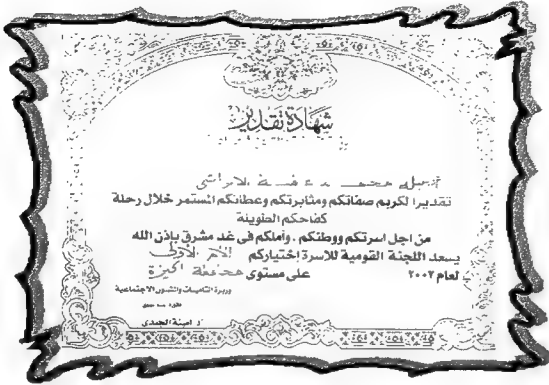 شهادة تقدير
محمد
تقديرا لكريم صفاتكم ومثابرتكم وعطائكم المستمر خلال رحلة
كفاحكم الطويلة
من اجل اسرتكم ووطنكم . وأملكم فى غد مشرق بإذن الله
يسعد اللجنة القومية للأسرة إختياركم
لعام ٢٠٠٢ على مستوى محافظة الجيزة
وزيرة التأمينات والشئون الاجتماعية
د. امينة الجندى